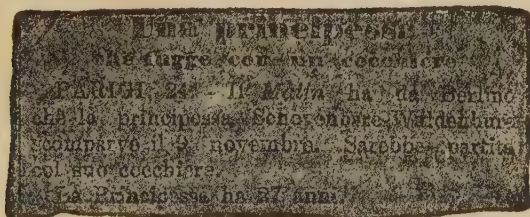 Una principessa
che fugge con un cocchiere
PARIGI 24 Il Matin ha da Berlino
che la principessa
scomparve il 9 novembre. Sarebbe partita
col suo cocchiere.
La Principessa ha 27 anni.